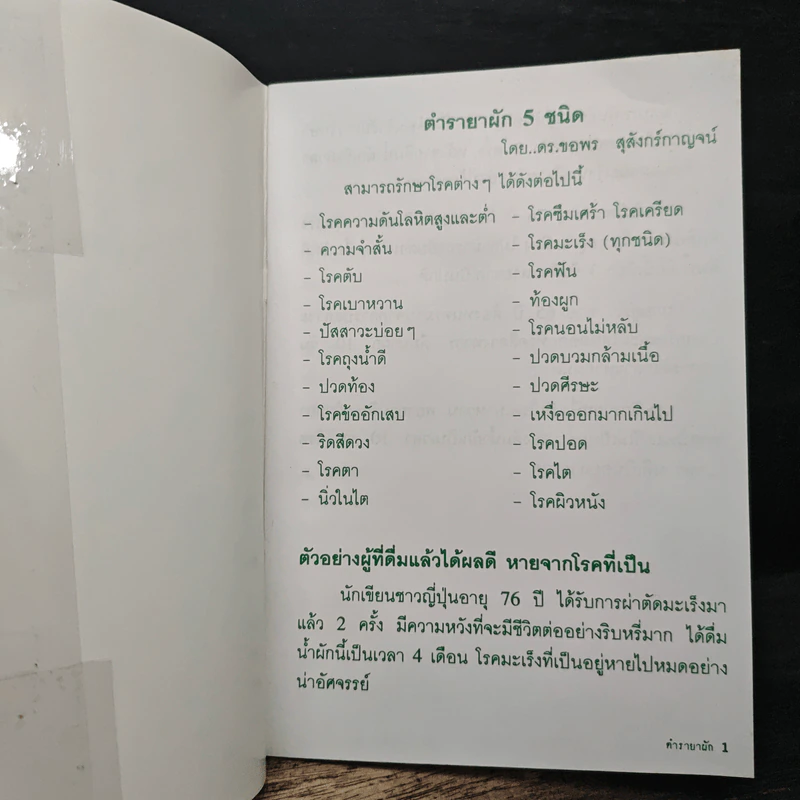 ตำรายาผัก 5 ชนิด
โดย..ดร.ขอพร สุสังกร์กาญจน์
สามารถรักษาโรคต่างๆ ได้ดังต่อไปนี้
- โรคความดันโลหิตสูงและต่ำ
- ความจำสั้น
- โรคตับ
- โรคเบาหวาน
- ปัสสาวะบ่อยๆ
- โรคถุงน้ำดี
- ปวดท้อง
- โรคข้ออักเสบ
- ริดสีดวง
- โรคตา
- นิ่วในไต
- โรคซึมเศร้า โรคเครียด
- โรคมะเร็ง (ทุกชนิด)
- โรคฟัน
- ท้องผูก
- โรคนอนไม่หลับ
- ปวดบวมกล้ามเนื้อ
- ปวดศีรษะ
- เหงื่อออกมากเกินไป
- โรคปอด
- โรคไต
- โรคผิวหนัง
ตัวอย่างผู้ที่ดื่มแล้วได้ผลดี หายจากโรคที่เป็น
นักเขียนชาวญี่ปุ่นอายุ 76 ปี ได้รับการผ่าตัดมะเร็งมา
แล้ว 2 ครั้ง มีความหวังที่จะมีชีวิตต่ออย่างริบหรี่มาก ได้ดื่ม
น้ำผักนี้เป็นเวลา 4 เดือน โรคมะเร็งที่เป็นอยู่หายไปหมดอย่าง
น่าอัศจรรย์
ตำรายาผัก 1